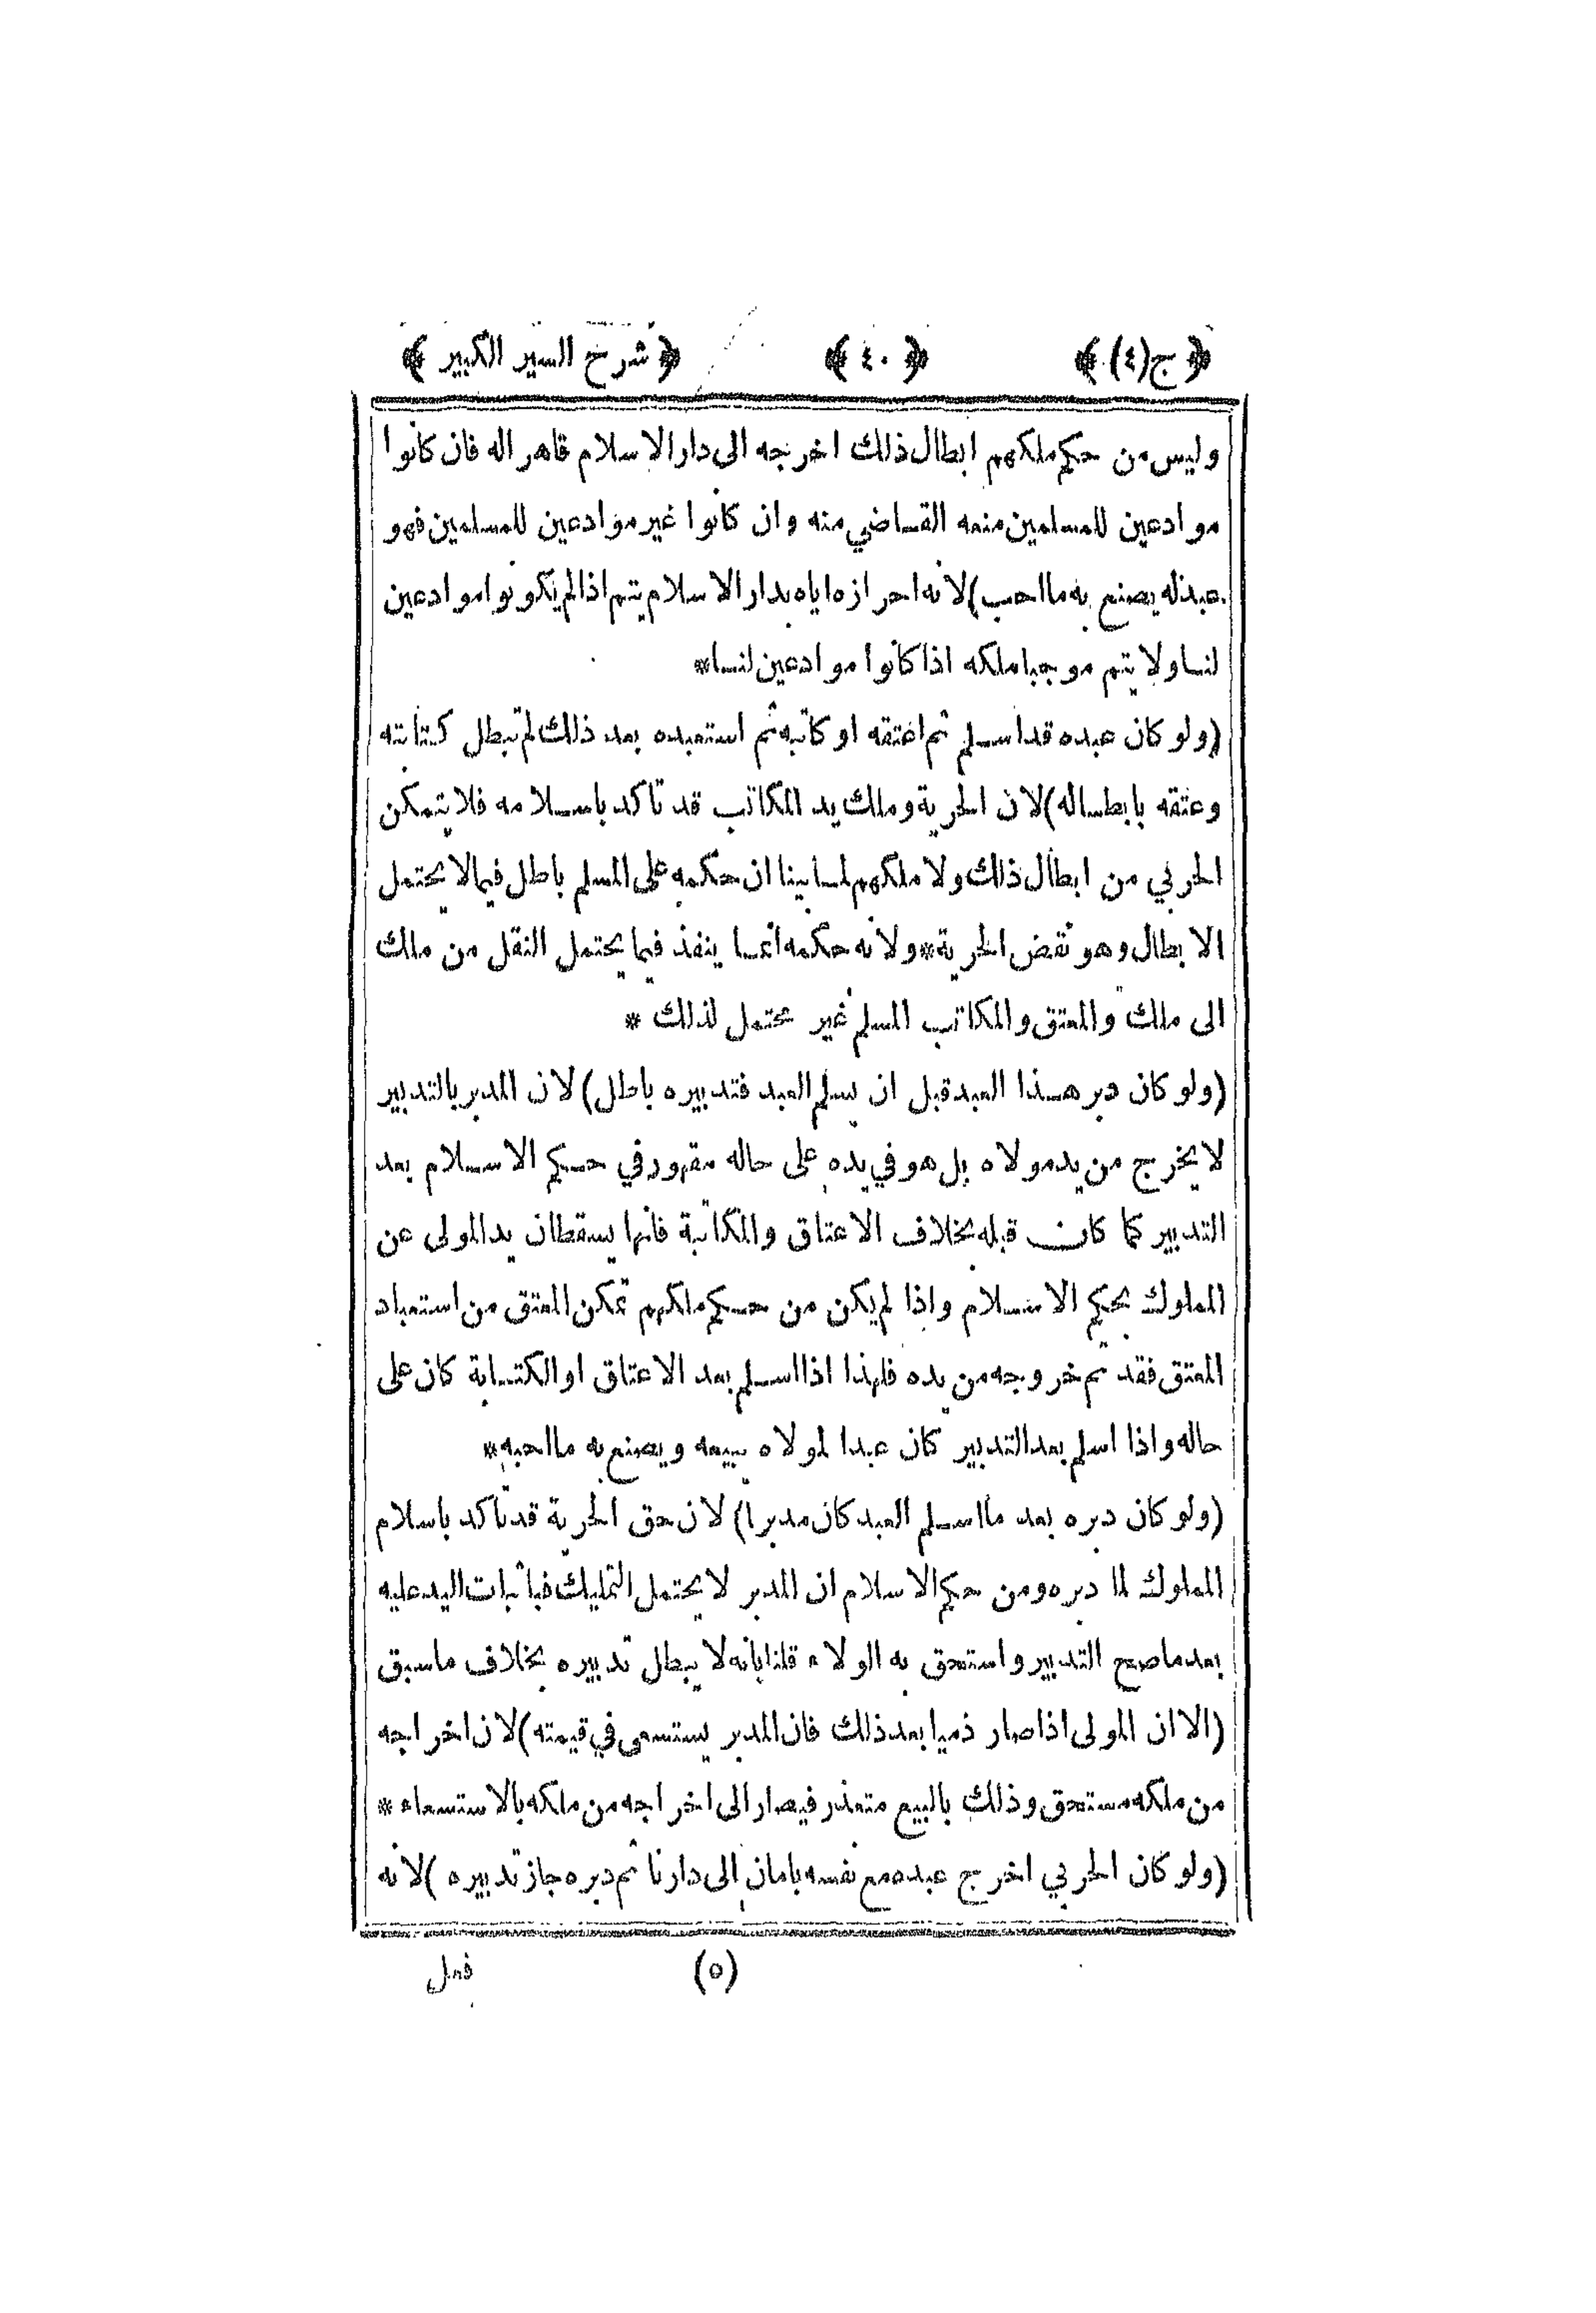 ﴿ ج(٤) ﴾ ﴿ ٤٠ ﴾ ﴿ شرح السير الكبير ﴾
وليس من حكم ملكهم ابطال ذلك اخرجه الى دار الاسلام قاهرا له فان كانوا
موادعين للمسلمين منعه القاضي منه وان كانوا غير موادعين للمسلمين فهو
عبد له يصنع به ما احب) لانه احرازه اياه بدار الاسلام يتم اذا لم يكونوا موادعين
لنا ولا يتم موجبا ملكه اذا كانوا موادعين لنا*
(ولو كان عبده قد اسلم ثم اعتقه او كاتبه ثم استعبده بعد ذلك لم تبطل كتابته
وعتقه بابطاله) لان الحرية وملك يد المكاتب قد تأكد باسلامه فلا يتمكن
الحربي من ابطال ذلك ولا ملكهم لما بينا ان حكمه على المسلم باطل فيما لا يحتمل
الابطال وهو نقض الحرية* ولانه حكمه انما ينفذ فيما يحتمل النقل من ملك
الى ملك والمعتق والمكاتب المسلم غير محتمل لذلك *
(ولو كان دبر هذا العبد قبل ان يسلم العبد فتدبيره باطل) لان المدبر بالتدبير
لا يخرج من يد مولاه بل هو في يده على حاله مقهور في حكم الاسلام بعد
التدبير كما كان قبله بخلاف الاعتاق والمكاتبة فانهما يسقطان يد المولى عن
المملوك بحكم الاسلام واذا لم يكن من حكم ملكهم تمكن المعتق من استعباد
المعتق فقد تم خروجه من يده فلهذا اذا اسلم بعد الاعتاق او الكتابة كان على
حاله واذا اسلم بعد التدبير كان عبدا لمولاه يبيعه ويصنع به ما احبه*
(ولو كان دبره بعد ما اسلم العبد كان مدبرا) لان حق الحرية قد تأكد باسلام
المملوك لما دبره ومن حكم الاسلام ان المدبر لا يحتمل التمليك فباثبات اليد عليه
بعد ما صح التدبير واستحق به الولاء قلنا بانه لا يبطل تدبيره بخلاف ما سبق
(الا ان المولى اذا صار ذميا بعد ذلك فان المدبر يستسعى في قيمته) لان اخراجه
من ملكه مستحق وذلك بالبيع متعذر فيصار الى اخراجه من ملكه بالاستسعاء *
(ولو كان الحربي اخرج عبده مع نفسه بامان الى دارنا ثم دبره جاز تدبيره) لانه
(٥) فصل